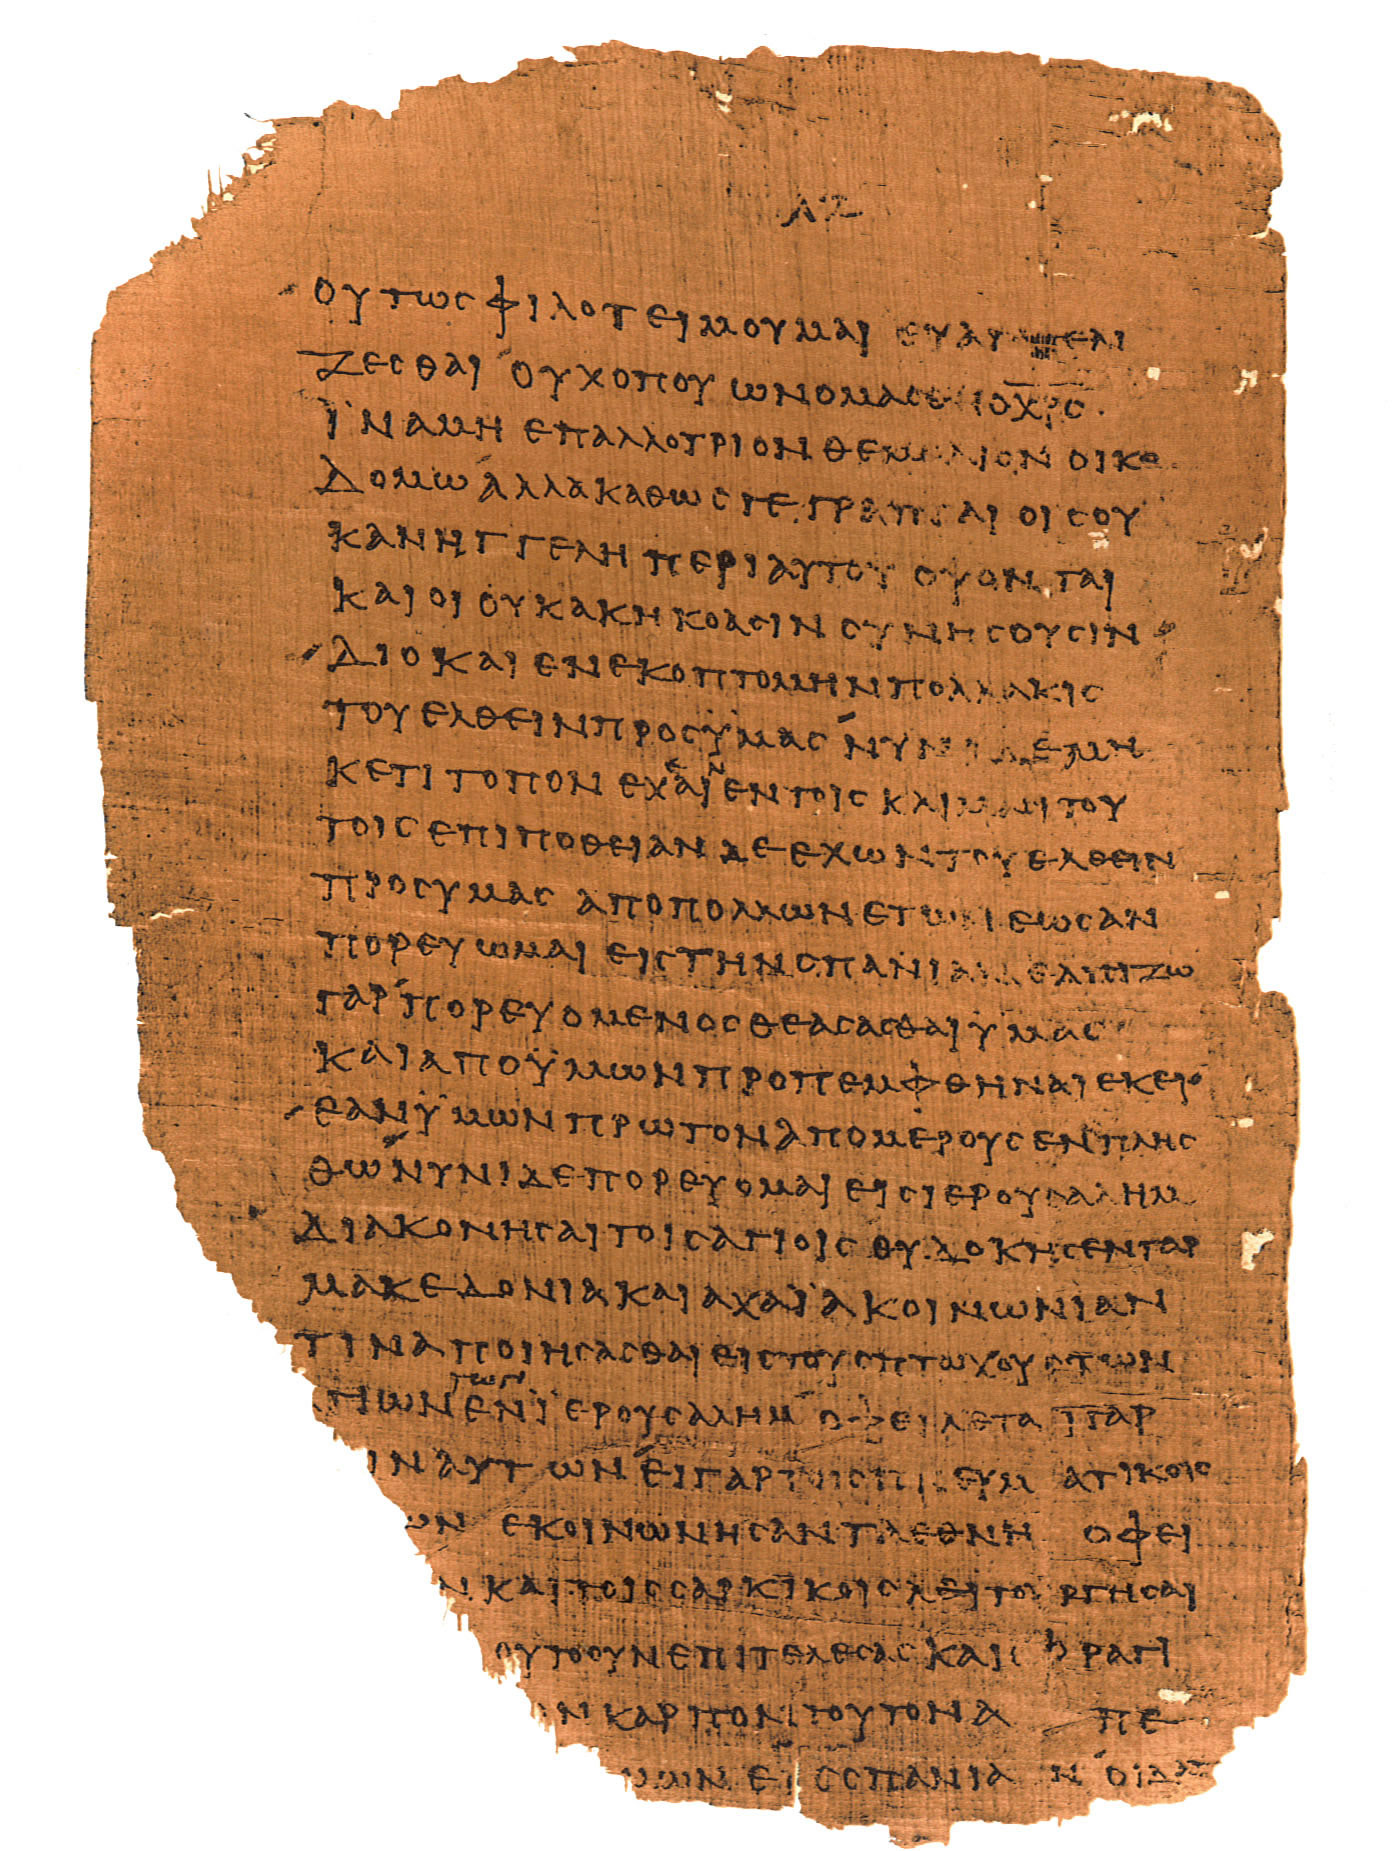 ΛΖ
ΟΥΤΩϹ ΦΙΛΟΤΕΙΜΟΥΜΑΙ ΕΥΑΓΓΕΛΙ
ΖΕϹΘΑΙ ΟΥΧ ΟΠΟΥ ΩΝΟΜΑϹΘΗ Ο ΧΡϹ
ΙΝΑ ΜΗ ΕΠ ΑΛΛΟΤΡΙΟΝ ΘΕΜΕΛΙΟΝ ΟΙΚΟ
ΔΟΜΩ ΑΛΛΑ ΚΑΘΩϹ ΓΕΓΡΑΠΤΑΙ ΟΙϹ ΟΥ
Κ ΑΝΗΓΓΕΛΗ ΠΕΡΙ ΑΥΤΟΥ ΟΨΟΝΤΑΙ
ΚΑΙ ΟΙ ΟΥΚ ΑΚΗΚΟΑϹΙΝ ϹΥΝΗϹΟΥϹΙΝ
ΔΙΟ ΚΑΙ ΕΝΕΚΟΠΤΟΜΗΝ ΠΟΛΛΑΚΙϹ
ΤΟΥ ΕΛΘΕΙΝ ΠΡΟϹ ΫΜΑϹ ΝΥΝΙ ΔΕ ΜΗ
ΚΕΤΙ ΤΟΠΟΝ ΕΝ ΤΟΙϹ ΚΛΙΜΑϹΙ ΤΟΥ
ΤΟΙϹ ΕΠΙΠΟΘΕΙΑΝ ΔΕ ΕΧΩΝ ΤΟΥ ΕΛΘΕΙΝ
ΠΡΟϹ ΥΜΑϹ ΑΠΟ ΠΟΛΛΩΝ ΕΤΩΝ ΕΩϹ ΑΝ
ΠΟΡΕΥΩΜΑΙ ΕΙϹ ΤΗΝ ϹΠΑΝΙΑΝ ΕΛΠΙΖΩ
ΓΑΡ ΠΟΡΕΥΟΜΕΝΟϹ ΘΕΑϹΑϹΘΑΙ ΫΜΑϹ
ΚΑΙ ΑΠΟ ΫΜΩΝ ΠΡΟΠΕΜΦΘΗΝΑΙ ΕΚΕΙ
ΕΑΝ ΫΜΩΝ ΠΡΩΤΟΝ ΑΠΟ ΜΕΡΟΥϹ ΕΝΠΛΗϹ
ΘΩ ΝΥΝΙ ΔΕ ΠΟΡΕΥΟΜΑΙ ΕΙϹ ΙΕΡΟΥϹΑΛΗΜ
ΔΙΑΚΟΝΗϹΑΙ ΤΟΙϹ ΑΓΙΟΙϹ ΗΥΔΟΚΗϹΕΝ ΓΑΡ
ΜΑΚΕΔΟΝΙΑ ΚΑΙ ΑΧΑΪΑ ΚΟΙΝΩΝΙΑΝ
ΤΙΝΑ ΠΟΙΗϹΑϹΘΑΙ ΕΙϹ ΤΟΥϹ ΠΤΩΧΟΥϹ ΤΩΝ
ΓΙΩΝ ΤΩΝ ΕΝ ΪΕΡΟΥϹΑΛΗΜ ΟΦΕΙΛΕΤΑΙ ΓΑΡ
ΙΝ ΑΥΤΩΝ ΕΙ ΓΑΡ ΤΟΙϹ ΠΝΕΥΜΑΤΙΚΟΙϹ
ΩΝ ΕΚΟΙΝΩΝΗϹΑΝ ΤΑ ΕΘΝΗ ΟΦΕΙ
Ν ΚΑΙ ΤΟΙϹ ϹΑΡΚΙΚΟΙϹ ΛΕΙΤΟΥΡΓΗϹΑΙ
ΟΥΤΟ ΟΥΝ ΕΠΙΤΕΛΕϹΑϹ ΚΑΙ ϹΦΡΑΓΙ
Ν ΚΑΡΠΟΝ ΤΟΥΤΟΝ Α ΠΕ
ΥΜΩΝ ΕΙϹ ϹΠΑΝΙΑΝ ΟΙΔΑ